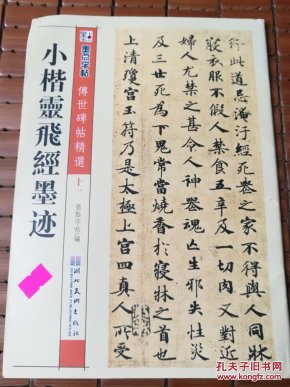 墨点字帖
傳世碑帖精選
十一
小楷靈飛經墨迹
墨點字帖 編
湖北美术出版社
行此道忌淹汙經死喪之家不得與人同牀
寢衣服不假人禁食五辛及一切肉又對近
婦人尤禁之甚令人神喪魂亡生邪失性災
及三世死為下鬼常當燒香於寢牀之首也
上清瓊宮玉符乃是太極上宮四真人所受
孔夫子旧书网